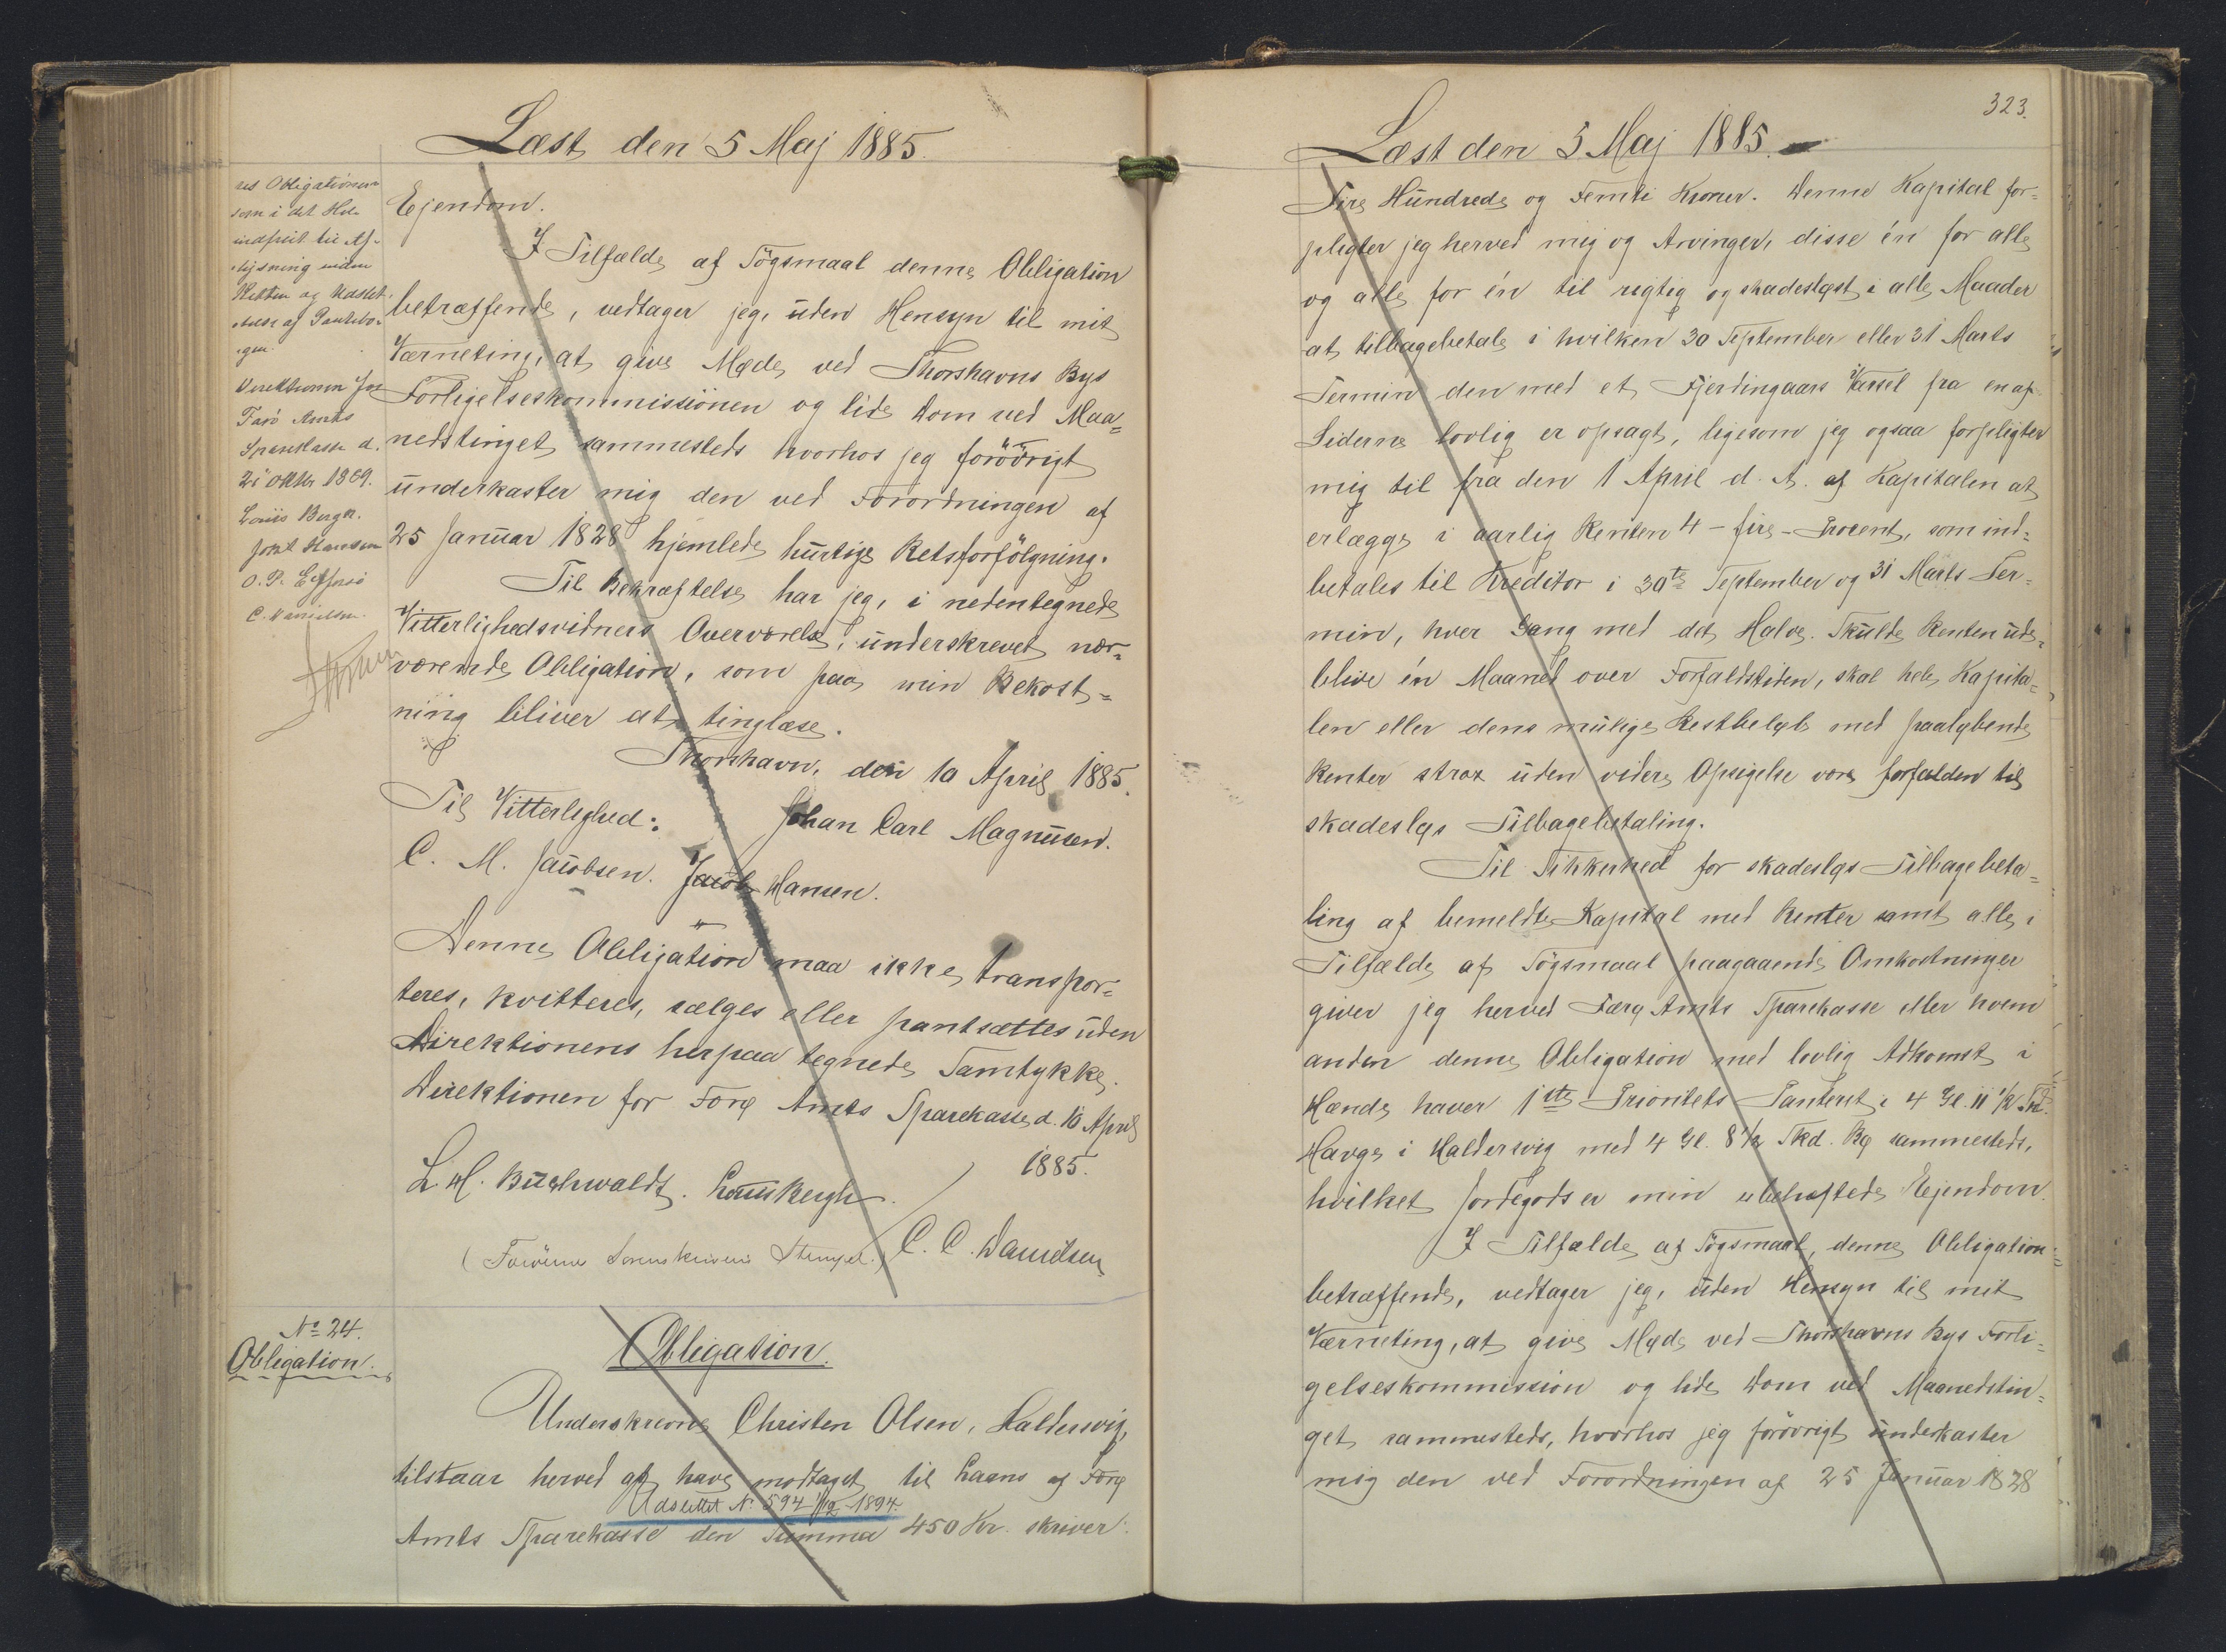 Læst den 5 Maj 1885.
res Obligationen
som i det Hele
indfriet til Af-
lysning uden
Retten og Udslet-
telse af Pantebo-
gen.
Direktionen for
Færø Amts
Sparekasse d.
21 oktbr 1889.
Louis Bergh.
Joh. Hansen
O. P. Effersö
C. Danielsen
Ejendom.
I Tilfælde af Sögsmaal denne Obligation
betræffende, vedtager jeg, uden Hensyn til mit
Værneting, at give Møde ved Thorshavns Bys
Forligelseskommissionen og lide Dom ved Maa=
nedstinget sammesteds hvorhos jeg forövrigt
underkaster mig den ved Forordningen af
25 Januar 1828 hjemlede hurtige Retsforfölgning.
Til Bekræftelse har jeg, i nedentegnede
Vitterlighedsvidners Overværelse, underskrevet nær=
værende Obligation, som paa min Bekost=
ning bliver at tinglæse.
Thorshavn, den 10 April 1885.
Til Vitterlighed: Johan Carl Magnusen.
C. M. Jacobsen. Jacob Hansen.
Denne Obligation maa ikke transpor=
teres, kvitteres, sælges eller pantsættes uden
Direktionens herpaa tegnede Samtykke.
Direktionen for Førø Amts Sparekasse d. 10 April
1885.
L. H. Buchwaldt. Louis Bergh.
(Færöerne Sorenskriveris Stempel.) C. C. Danielsen
No 24.
Obligation.
Obligation.
Underskrevne Christen Olsen, Haldersvig,
tilstaar herved at have modtaget til Laans af Førø
Udslettet No 594 1/12 1894.
Amts Sparekasse den Summa 450 Kr. skriver
323.
Læst den 5 Maj 1885.
Fire Hundrede og Femti Kroner. Denne Kapital for=
pligter jeg herved mig og Arvinger, disse én for alle
og alle for én til rigtig og skadesløst i alle Maader
at tilbagebetale i hvilken 30 September eller 31 Marts
Termin den med et Fjerdingaars Varsel fra en af
Siderne lovlig er opsagt, ligesom jeg ogsaa forpligter
mig til fra den 1 April d. A. af Kapitalen at
erlægge i aarlig Renten 4 - fire - Procent, som ind=
betales til Kreditor i 30te September og 31 Marts Ter=
min, hver Gang med det Halve. Skulde Renten ude=
blive én Maaned over Forfaldstiden, skal hele Kapita=
len eller dens mulige Restbeløb med paaløbende
Renter strax uden videre Opsigelse være forfalden til
skadesløs Tilbagebetaling.
Til Sikkerhed for skadesløs Tilbagebeta=
ling af bemeldte Kapital med Renter samt alle i
Tilfælde af Sögsmaal paagaaende Omkostninger
giver jeg herved Færø Amts Sparekasse eller hvem
anden denne Obligation med lovlig Adkomst i
Hænde haver 1ste Prioritets Panteret i 4 Gl. 11 1/2 Skd.
Hauge i Haldersvig med 4 Gl. 8 1/2 Skd. Bø sammesteds,
hvilket Jordegods er min ubehæftede Ejendom.
I Tilfælde af Sögsmaal, denne Obligation
betræffende, vedtager jeg, uden Hensyn til mit
Værneting, at give Møde ved Thorshavns Bys Forli=
gelseskommission og lide Dom ved Maanedstin=
get sammesteds, hvorhos jeg forövrigt underkaster
mig den ved Forordningen af 25 Januar 1828